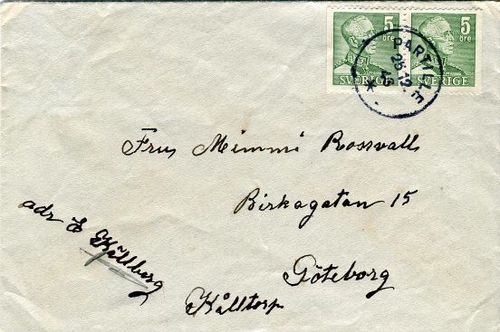 5 öre
SVERIGE
5 öre
SVERIGE
PARTILLE
28.12.
45
Fru Mimmi Rossvall
Birkagatan 15
Göteborg
adr E Källberg
Kålltorp